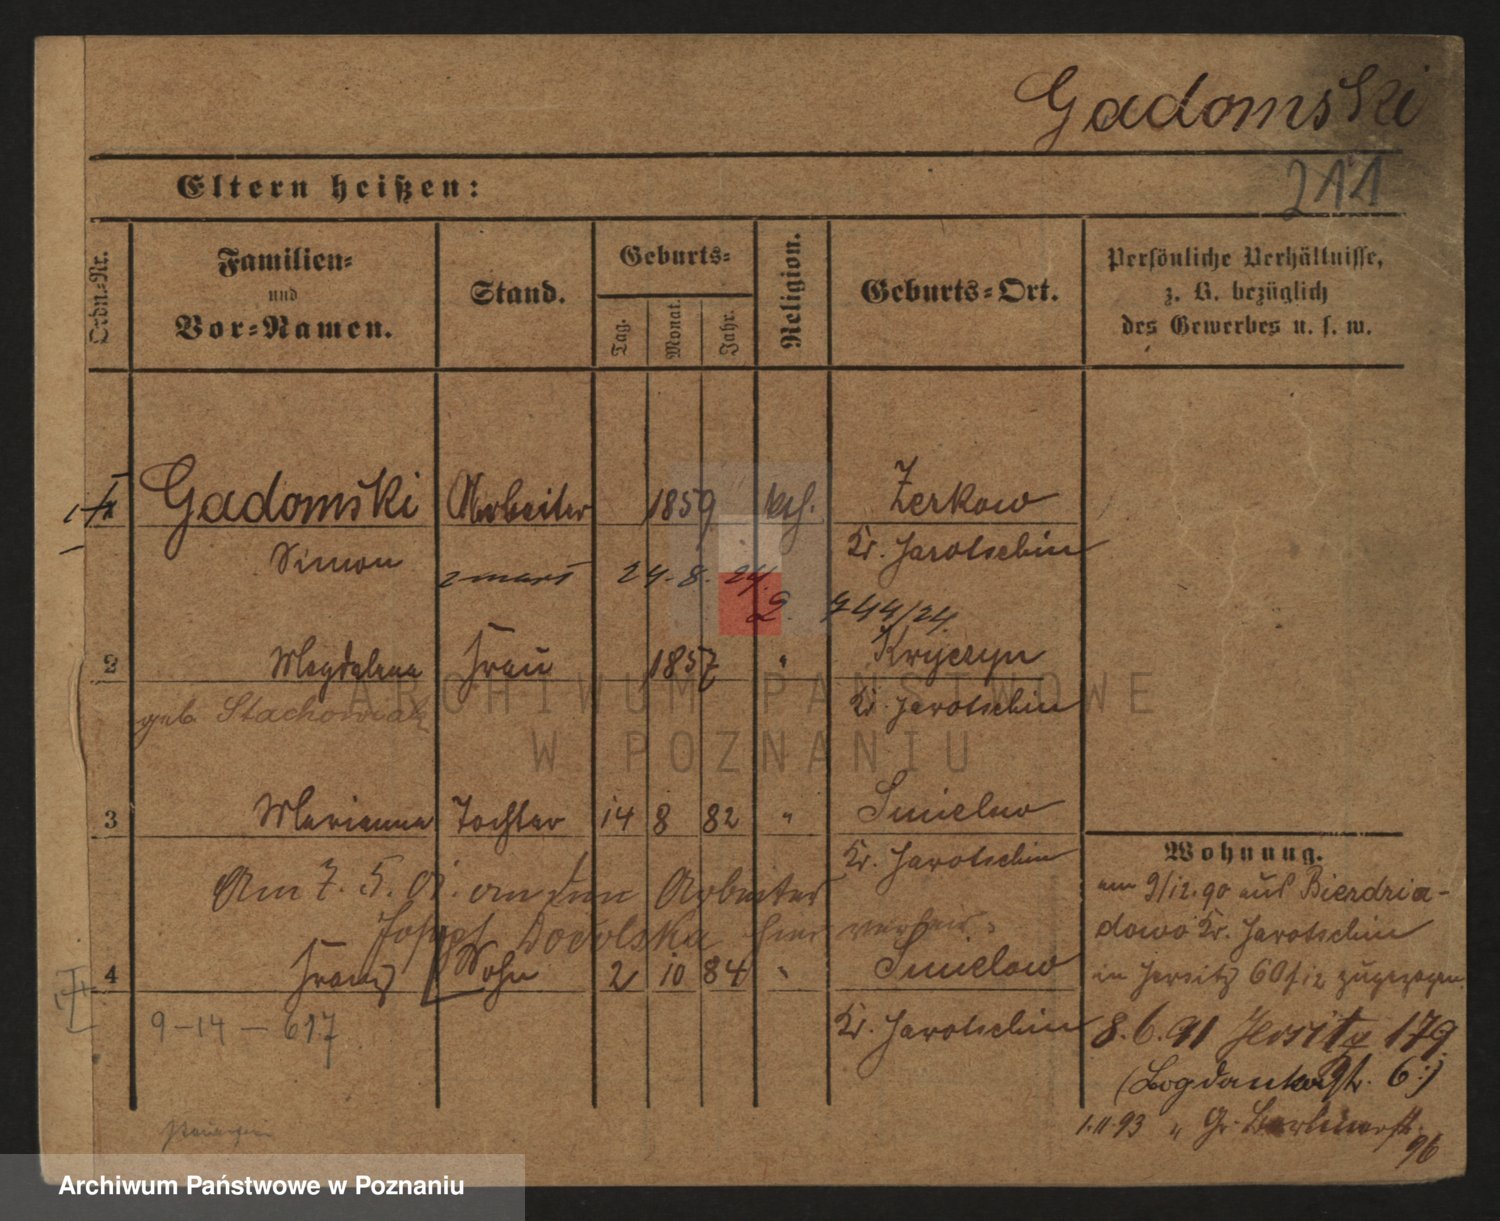 Gadomski
211
Eltern heißen:
Ordn.-Nr.
Familien-
und
Vor-Namen.
Stand.
Geburts-
Tag.
Monat.
Jahr.
Religion.
Geburts-Ort.
Persönliche Verhältnisse,
z. B. bezüglich
des Gewerbes u. s. w.
Gadomski Arbeiter 1859 kath. Zerkow
Simon Kr. Jarotschin
zmarł 24.8.24.
2. 744/24.
2 Magdalena Frau 1857 " Kryczyn
geb. Stachowiak Kr. Jarotschin
ARCHIWUM PAŃSTWOWE
W POZNANIU
3 Marianna Tochter 14 8 82 " Smielow
Kr. Jarotschin
Am 7. 5. 01. an den Arbeiter
Joseph hier verheir.
4 Franz Sohn 2 10 84 " Smielow
9-14-617 Kr. Jarotschin
Wohnung.
am 9/12.90 aus Bierdzia-
dowo Kr. Jarotschin
in Jersitz 60 zugezogen
8.6.91 Jersitz 179
(Bogdankastr. 6:)
1.11.93 " Gr. Berlinerstr.
96
Archiwum Państwowe w Poznaniu